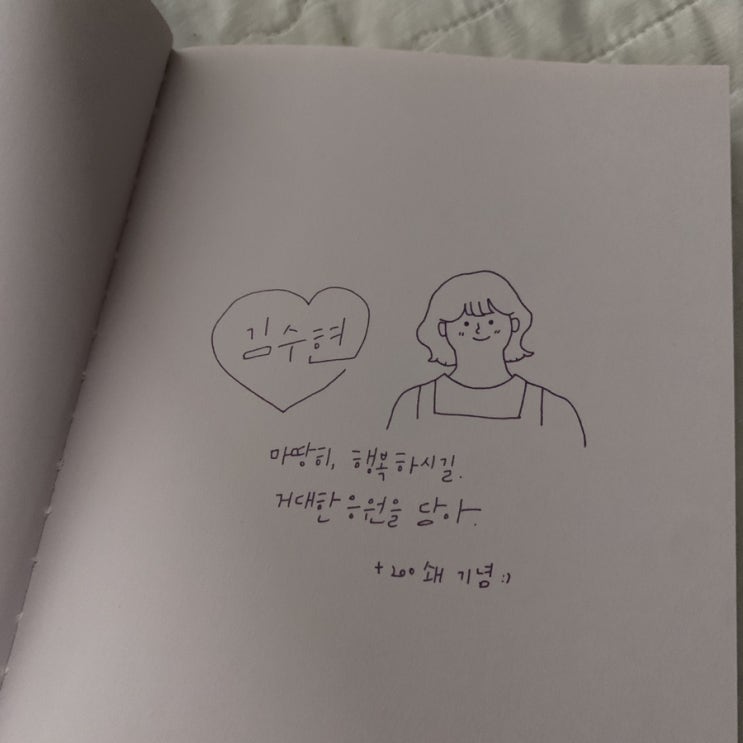 김수현
마땅히, 행복하시길.
거대한 응원을 담아.
+ 200쇄 기념 :)